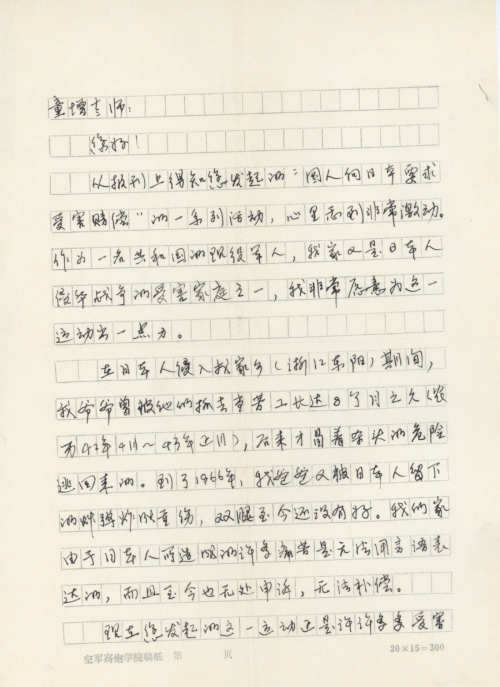 童增老师:
您好!
从报刊上得知您发起的"国人向日本要求
受害赔偿"的一系列活动,心里感到非常激动。
作为一名共和国的现役军人,我家又是日本人
侵华战争的受害家庭之一,我非常愿意为这一
运动出一点力。
在日本人侵入我家乡(浙江东阳)期间,
我爷爷曾被他们抓去单苦工长达8个月之久(农
历42年4月~43年正月),后来才冒着杀头的危险
逃回来的。到了1966年,我爸爸又被日本人留下
的炸弹炸成重伤,双腿至今还没有好。我们家
由于日本人所造成的许多痛苦是无法用言语表
达的,而且至今也无处申诉,无法补偿。
现在您发起的这一运动正是许许多多受害
空军高炮学院稿纸 第 页
20×15=300